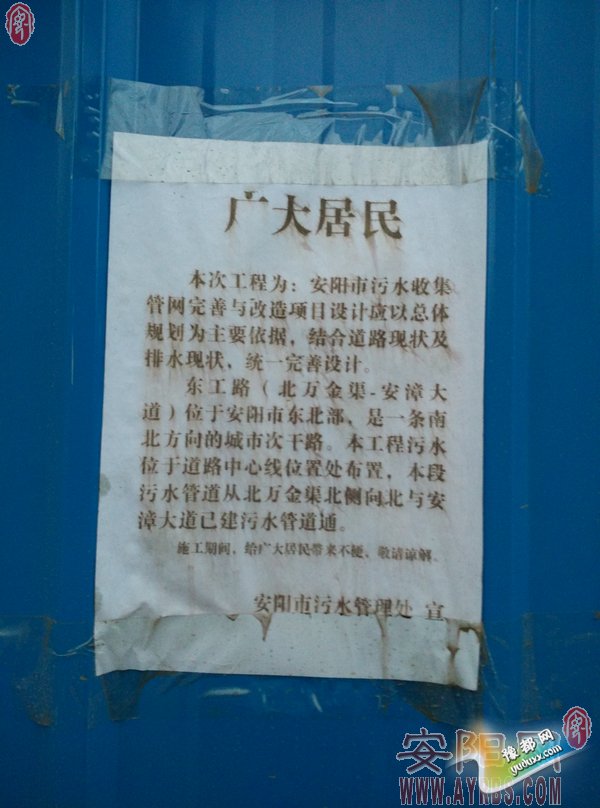 广大居民
本次工程为：安阳市污水收集
管网完善与改造项目设计应以总体
规划为主要依据，结合道路现状及
排水现状，统一完善设计。
东工路（北万金渠-安漳大
道）位于安阳市东北部，是一条南
北方向的城市次干路。本工程污水
位于道路中心线位置处布置，本段
污水管道从北万金渠北侧向北与安
漳大道已建污水管道通。
施工期间，给广大居民带来不便、敬请谅解。
安阳市污水管理处 宣
安阳网
WWW.AYRBS.COM
豫都网
yuduxx.com